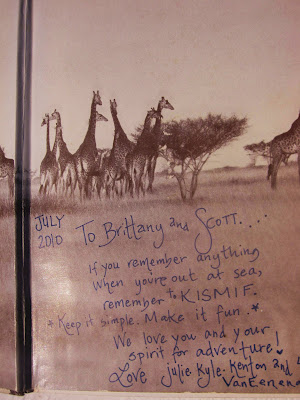 JULY
2010
To Brittany and SCOTT....
If you remember anything
when you're out at sea,
remember to KISMIF.
*Keep it simple. Make it fun.*
We love you and your
spirit for adventure!
Love Julie. Kyle. Kenton and